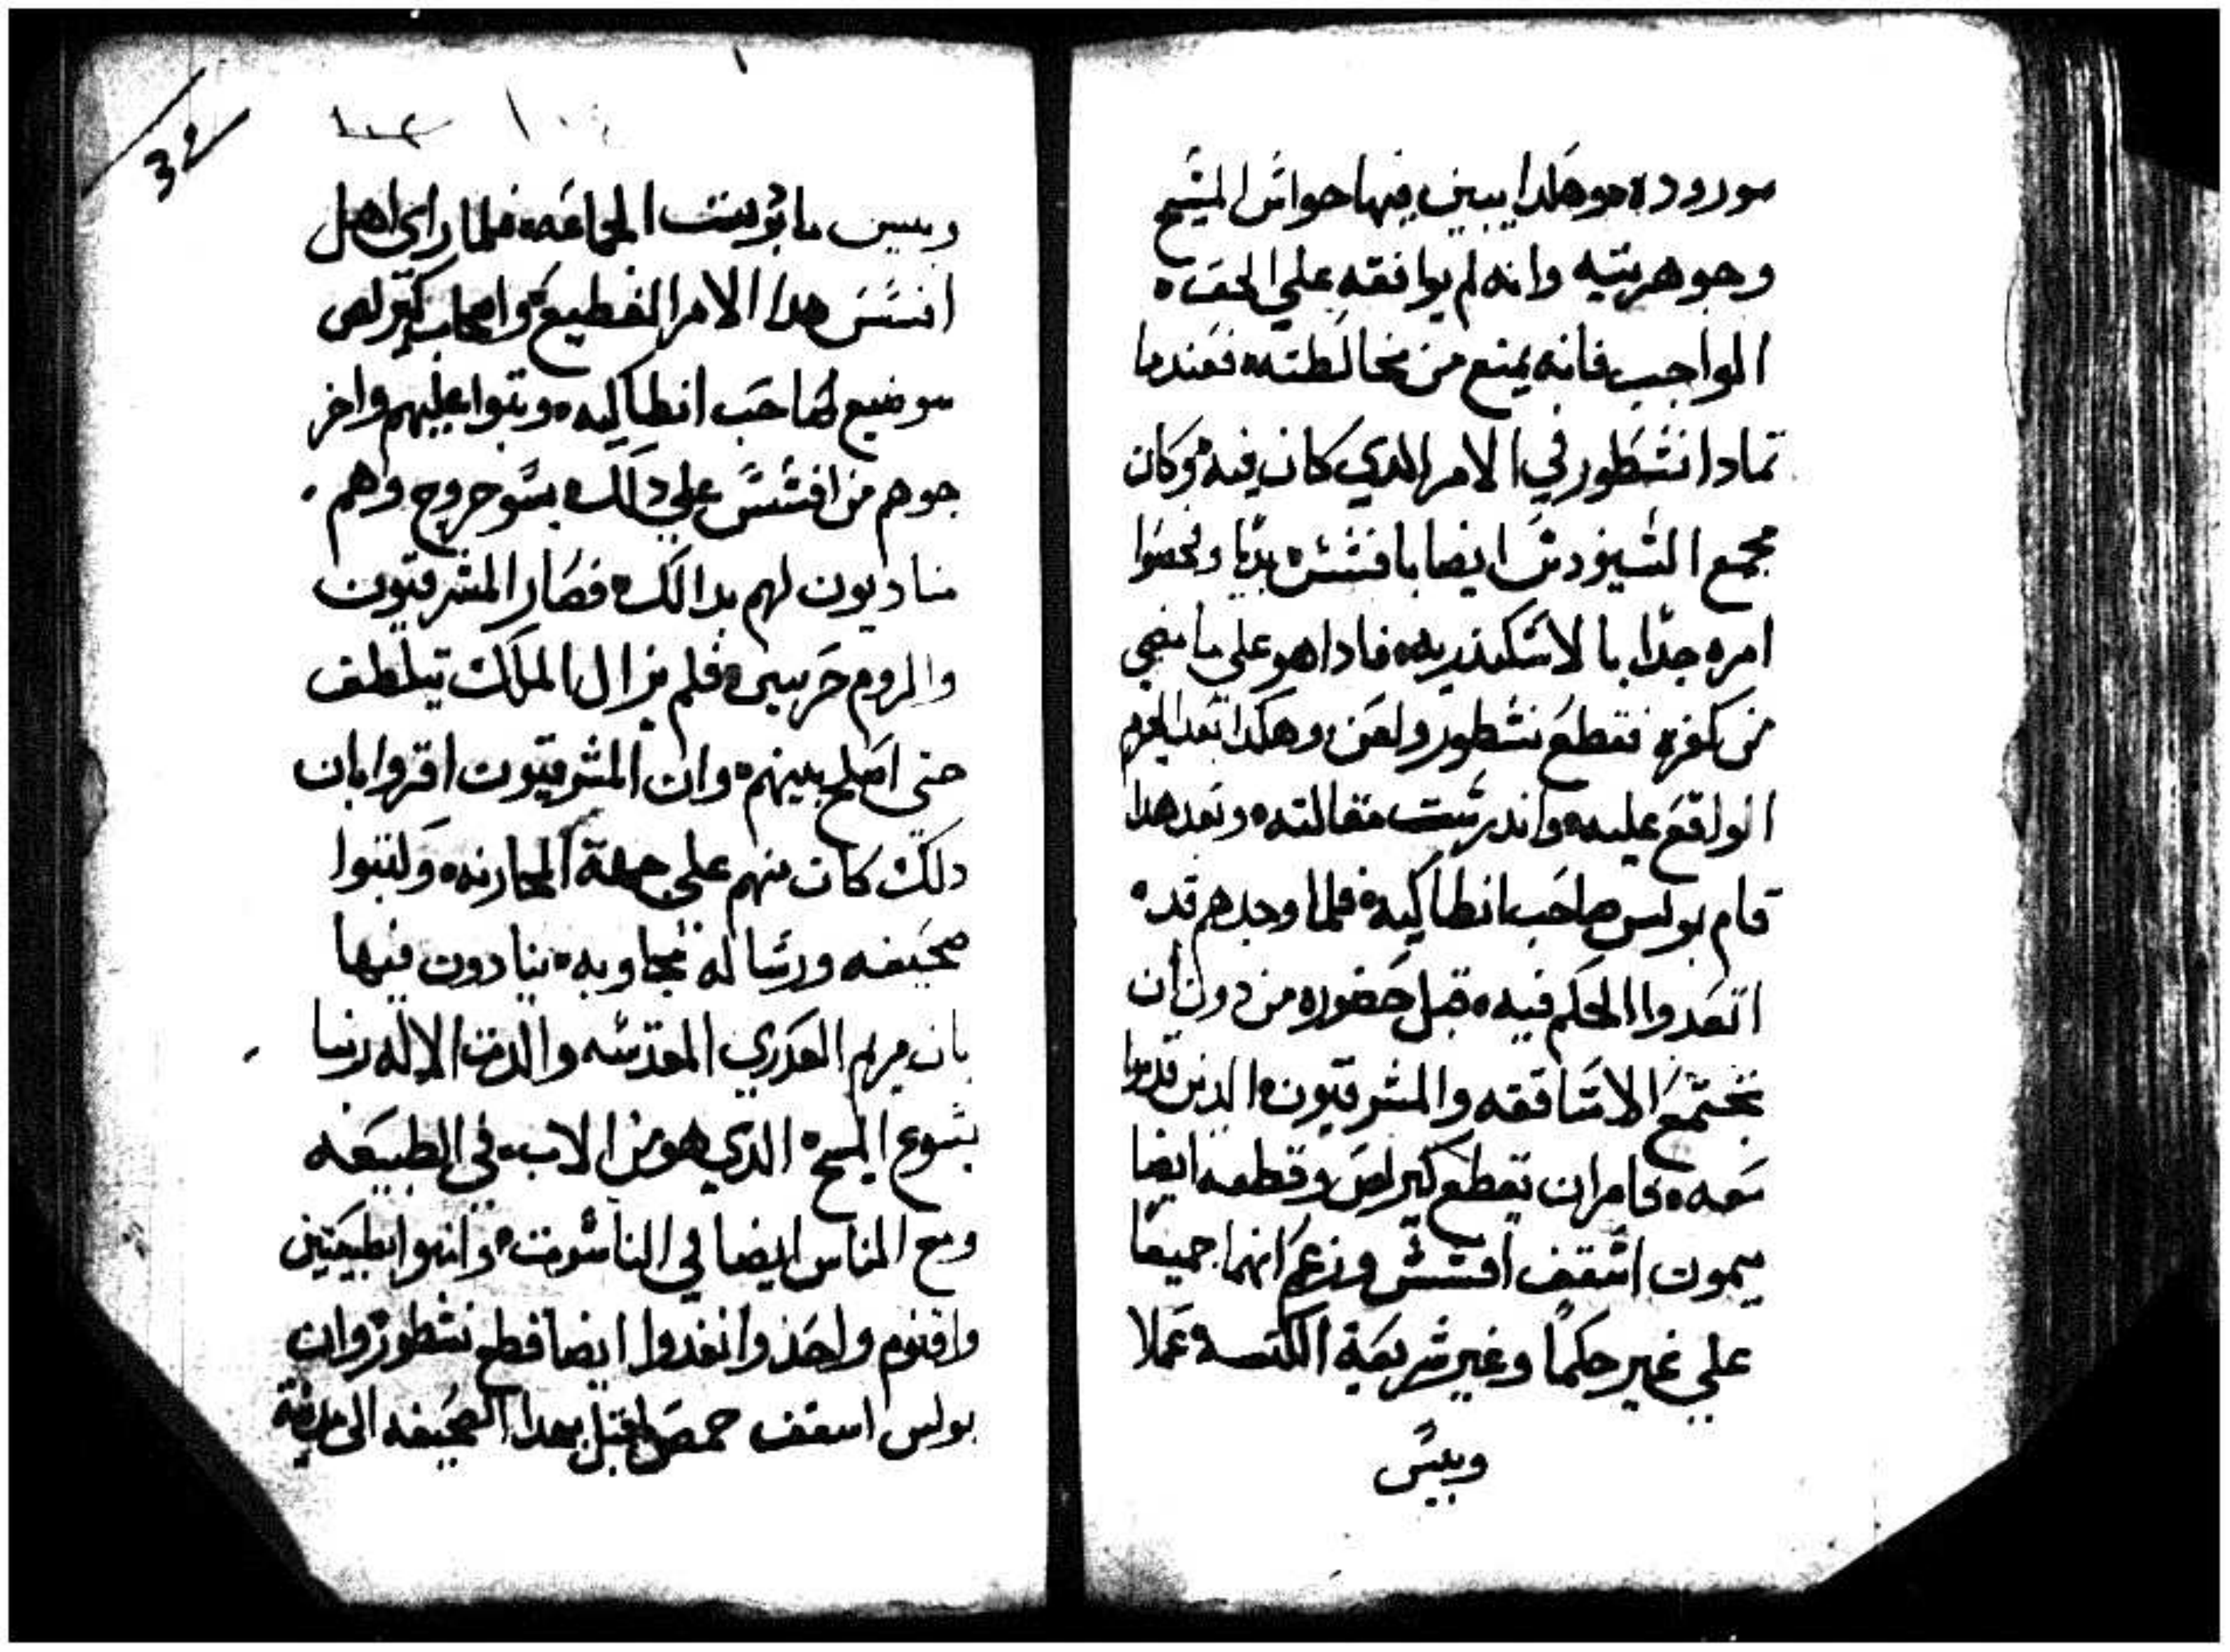 موروده وهكدا يبين فيها حواش المسيح
وجوهريته وانه لم يوافقه علي الحق
الواجب فانه يمنع من مخالطته فعندما
تمادا نسطور في الامر الدي كان فيه وكان
مجمع ايضا بافسس
امره جدا بالاسكندريه فادا هو علي ما مضي
من كفره فقطع نسطور ولعن وهكدا بعد الحرم
الواقع عليه واندرست مقالته وبعد هدا
قام بولس صاحب انطاكيه فلما وجدهم قد
انفدوا الحكم فيه قبل حضوره من دون ان
تجتمع الاساقفه والمشرقيون الدين قدموا
معه فامر ان تقطع كيرلص وقطعه ايضا
ميمون اسقف افسس وزعم انهما جميعا
علي غير حكما وغير شريعة الكنيسه عملا
وبيس
32
وبيس ما الجماعه فلما راي اهل
افسس هدا الامر الفظيع واصحاب كيرلص
موضع لصاحب انطاكيه وتبوا عليهم واخر
جوهم من افسس علي دلك بسو خروج وهم
مناديون لهم بدالك فصار المشرقيون
والروم حربين فلم يزال الملك يتلطف
حتي اصلح بينهم وان المشرقيون اقروا بان
دلك كان منهم علي جهة المحارنه وكتبوا
صحيفه ورساله مجاوبه ينادون فيها
بان مريم العدري المقدسه والدت الاله ربنا
يسوع المسيح الدي هو من الاب في الطبيعه
ومع الناس ايضا في الناسوت واتوا بطبيعتين
واقنوم واحد وانفدوا ايضا قطع نسطور وان
بولس اسقف حمص اقبل بهدا الصحيفه الى مدينة